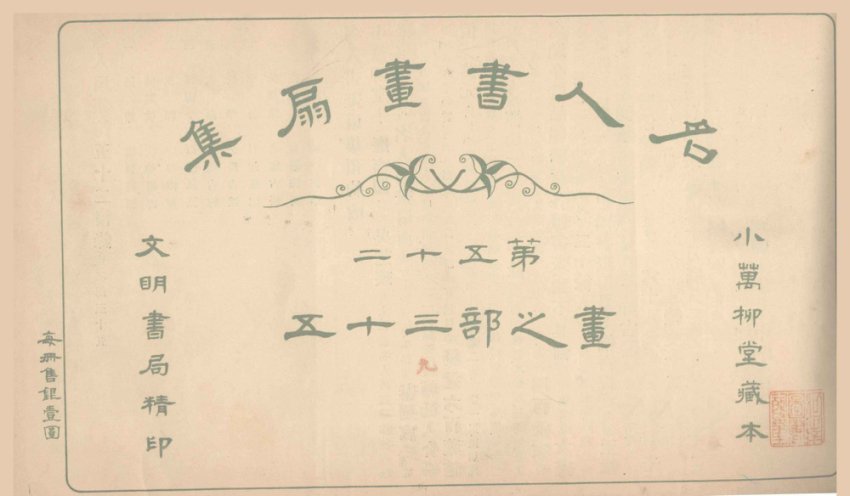 名人書畫扇集
第五十二
畫之部三十五
九
小萬柳堂藏本
文明書局精印
每冊售銀壹圓